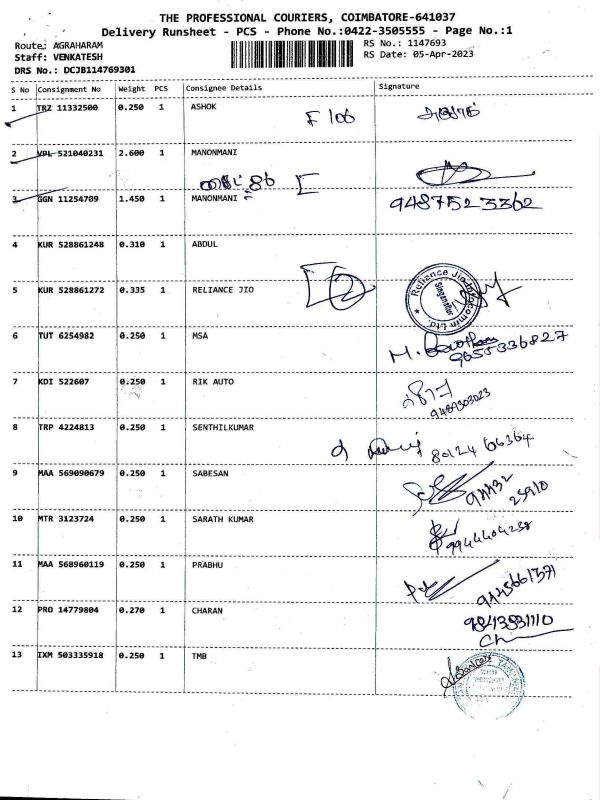 THE PROFESSIONAL COURIERS, COIMBATORE-641037
Delivery Runsheet - PCS - Phone No.:0422-3505555 - Page No.:1
Route: AGRAHARAM
RS No.: 1147693
Staff: VENKATESH
RS Date: 05-Apr-2023
DRS No.: DCJB114769301
S No Consignment No Weight PCS Consignee Details Signature
1 TRZ 11332500 0.250 1 ASHOK
F 106
2 VPL 521040231 2.600 1 MANONMANI
3 GGN 11254709 1.450 1 MANONMANI
9487523362
4 KUR 528861248 0.310 1 ABDUL
5 KUR 528861272 0.335 1 RELIANCE JIO
Reliance Jio Ltd.
Singanallur
6 TUT 6254982 0.250 1 MSA
M. 9655336827
7 KDI 522607 0.250 1 RIK AUTO
9489303023
8 TRP 4224813 0.250 1 SENTHILKUMAR
80124 66364
9 MAA 569090679 0.250 1 SABESAN
10 MTR 3123724 0.250 1 SARATH KUMAR
9944404238
11 MAA 568960119 0.250 1 PRABHU
12 PRO 14779804 0.270 1 CHARAN
Ch
13 IXM 503335918 0.250 1 TMB